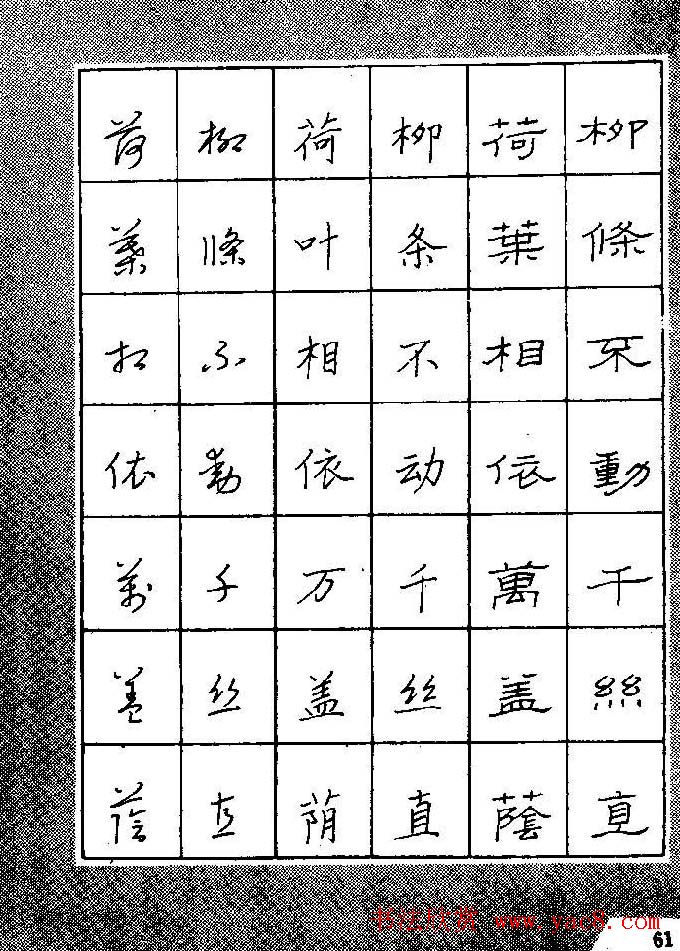 柳條不動千絲直
荷葉相依萬盖蔭
柳条不动千丝直
荷叶相依万盖荫
柳條不動千丝直
荷葉相依萬盖蔭
书法欣赏 www.yac8.com
61